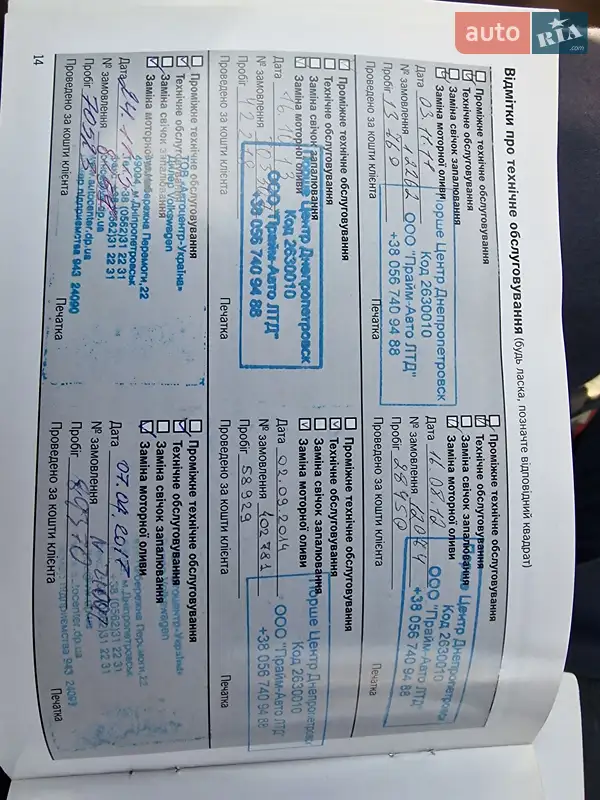 auto RIA.com
Відмітки про технічне обслуговування (будь ласка, позначте відповідний квадрат)
Проміжне технічне обслуговування
Технічне обслуговування
Заміна свічок запалювання
Заміна моторної оливи
Дата 03.11.11
№ замовлення 12262
Пробіг 13169
Проведено за кошти клієнта
Печатка
Порше Центр Днепропетровск
Код 2630010
ООО "Прайм-Авто ЛТД"
+38 056 740 94 88
Проміжне технічне обслуговування
Технічне обслуговування
Заміна свічок запалювання
Заміна моторної оливи
Дата 16.08.12
№ замовлення
Пробіг 28950
Проведено за кошти клієнта
Печатка
Порше Центр Днепропетровск
Код 2630010
ООО "Прайм-Авто ЛТД"
+38 056 740 94 88
Проміжне технічне обслуговування
Технічне обслуговування
Заміна свічок запалювання
Заміна моторної оливи
Дата
№ замовлення
Пробіг
Проведено за кошти клієнта
Печатка
Порше Центр Днепропетровск
Код 2630010
ООО "Прайм-Авто ЛТД"
+38 056 740 94 88
Проміжне технічне обслуговування
Технічне обслуговування
Заміна свічок запалювання
Заміна моторної оливи
Дата 02.09.2014
№ замовлення 102781
Пробіг 58929
Проведено за кошти клієнта
Печатка
Порше Центр Днепропетровск
Код 2630010
ООО "Прайм-Авто ЛТД"
+38 056 740 94 88
Проміжне технічне обслуговування
Технічне обслуговування
Заміна свічок запалювання
Заміна моторної оливи
Дата
№ замовлення
Пробіг
Проведено за кошти клієнта
Печатка
ТОВ «Автоцентр-Україна»
Volkswagen
Перемоги, 22
49094, м.Дніпропетровськ
+38 (0562)31 22 31
autocenter.dp.ua
підприємства 943 24090
Проміжне технічне обслуговування
Технічне обслуговування
Заміна свічок запалювання
Заміна моторної оливи
Дата 07.02.2017
№ замовлення
Пробіг 89370
Проведено за кошти клієнта
Печатка
Перемоги, 22
м.Дніпропетровськ
+38 (0562)31 22 31
підприємства 943 24091
14